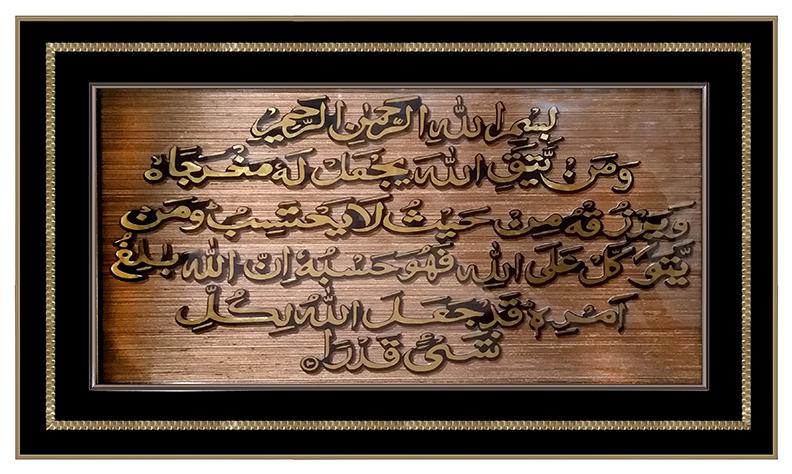 بِسْمِ اللهِ الرَّحْمٰنِ الرَّحِيْمِ
وَمَنْ يَّتَّقِ اللهَ يَجْعَلْ لَهٗ مَخْرَجًا ۙ
وَيَرْزُقْهُ مِنْ حَيْثُ لَا يَحْتَسِبُ ؕ وَمَنْ
يَّتَوَكَّلْ عَلَى اللهِ فَهُوَ حَسْبُهٗ اِنَّ اللهَ بٰلِغُ
اَمْرِهٖ قَدْ جَعَلَ اللهُ لِكُلِّ
شَىْءٍ قَدْرًا